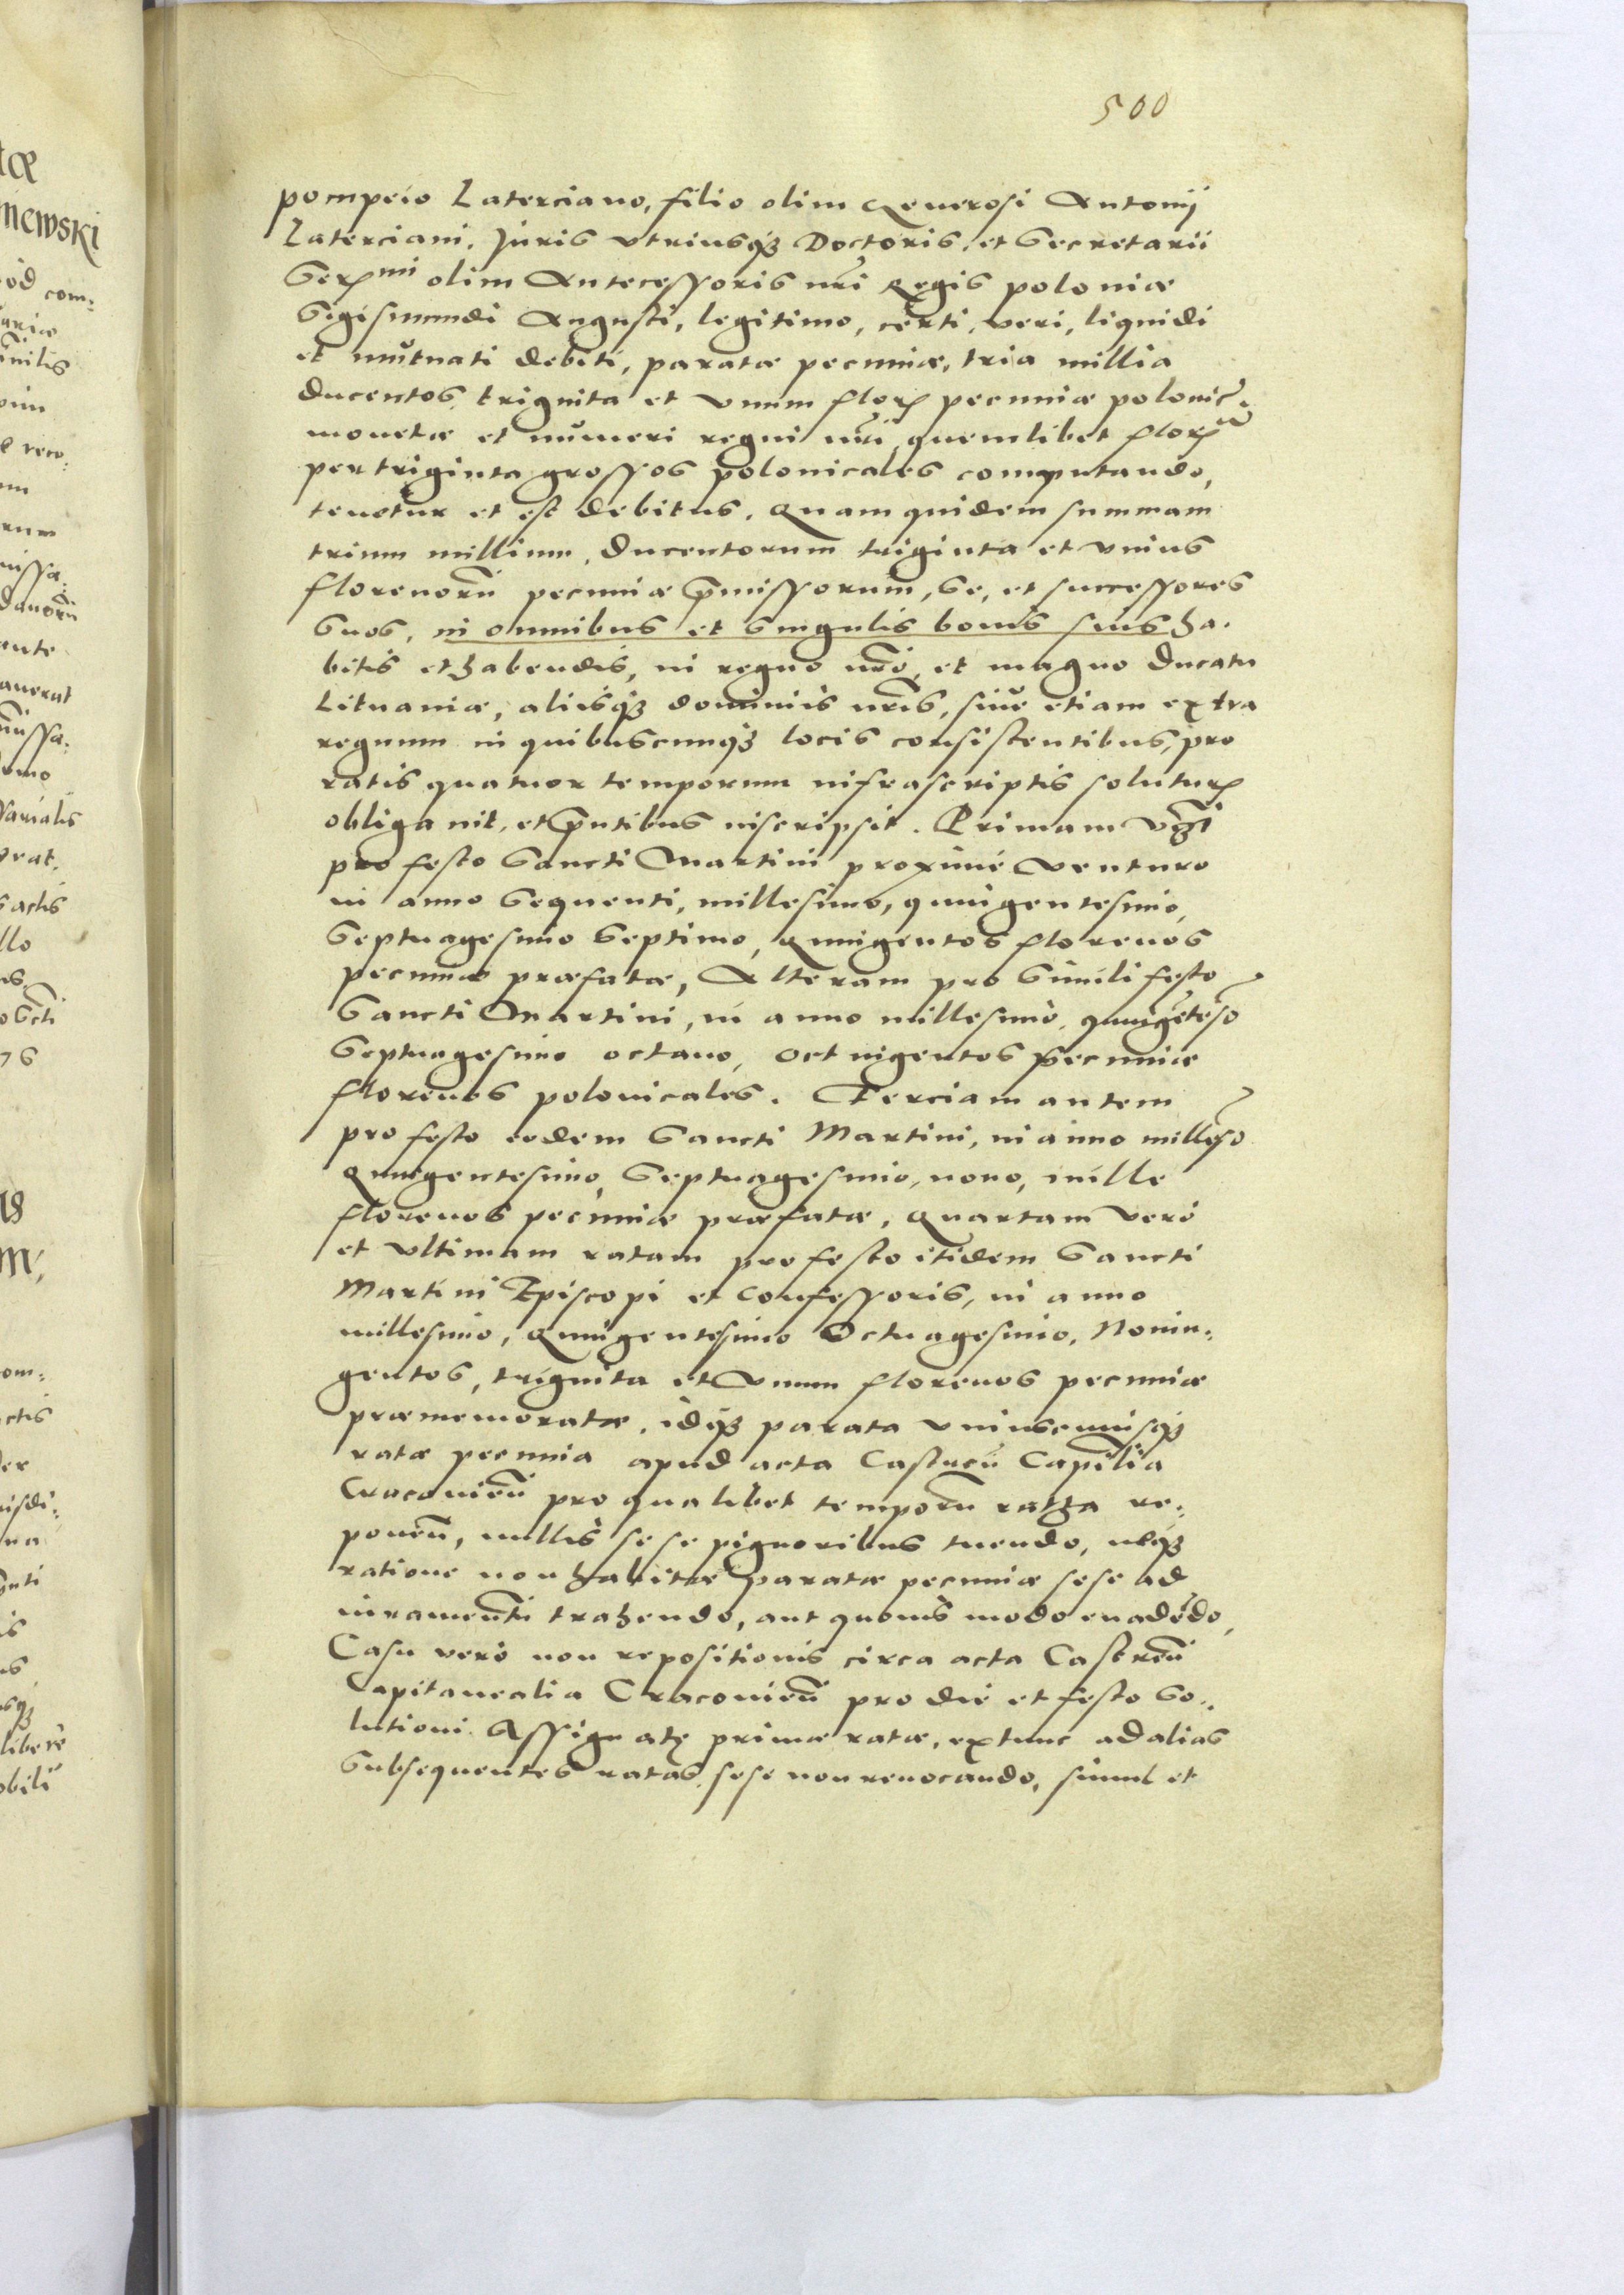 500
pompeio Laterciano, filio olim Generosi Antonij
Laterciani, Juris vtriusq3 Doctoris, et Secretarii
Ser^mi olim Antecessoris nri Regis poloniæ
Sigismundi Augusti, legitimo, certi, veri, liquidi
et mutuati debiti, paratæ pecuniæ, tria millia
ducentos, triginta et vnum flor pecuniæ polonic
monetæ et numeri regni nri, quemlibet flor
per triginta grossos polonicales computando,
tenetur et est debitus. Quam quidem summam
trium millium, ducentorum triginta et vnius
florenoru pecuniæ pmissorum, se, et successores
suos, in omnibus et singulis bonis suis ha.
bitis et habendis, in regno nro, et magno Ducatu
Lituaniæ, aliisq3 dominiis nris, siue etiam extra
regnum in quibuscunq3 locis consistentibus, pro
ratis quatuor temporum infrascriptis solutur
obligauit, et pntibus inscripsit. Primam vz
pro festo Sancti Martini proximè venturo
in anno sequenti, millesimo, quingentesimo,
Septuagesimo Septimo, quingentos florenos
pecuniæ præfatæ, Alteram pro simili festo
Sancti Martini, in anno millesimo, quigeteso
Septuagesimo octauo, octuigentos pecuniæ
florenos polonicales. Terciam autem
pro festo eodem Sancti Martini, in anno milleso
Quingentesimo, Septuagesimo, nono, mille
florenos pecuniæ præfatæ, Quartam verò
et vltimam ratam pro festo itidem Sancti
Martini Episcopi et Confessoris, in anno
millesimo, Quingentesimo Octuagesimo, Nonin:
gentos, triginta et vnum florenos pecuniæ
præmemoratæ, idq3 parata vniuscuiusq3
ratæ pecunia apud acta Castren Capnlia
Cracouien pro qualibet temporu ratha re:
ponen, nullis sese pignoribus tuendo, neq3
ratione non habitæ paratæ pecuniæ sese ad
iuramentu trahendo, aut quouis modo euadedo,
Casu verò non repositionis circa acta Castren
Capitanealia Cracouien pro die et festo so:
lutioni Assignatę primæ ratæ, extunc ad alias
subsequentes ratas sese non reuocando, simul et